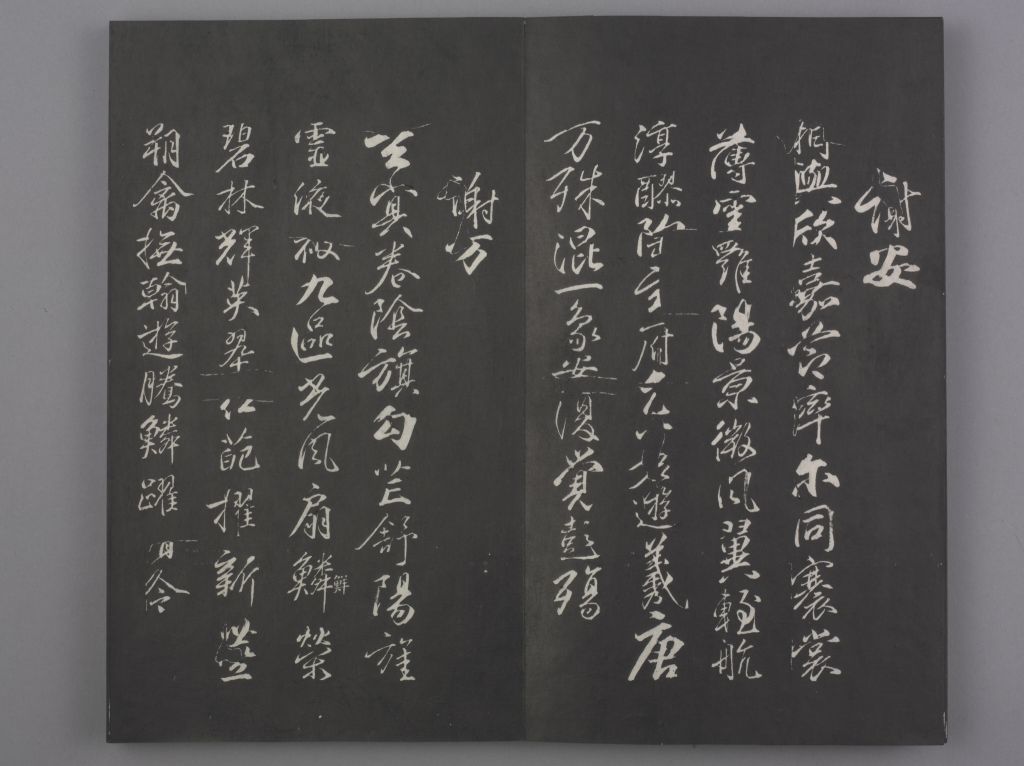 謝安
相與欣嘉節率尓同褰裳
薄雲羅陽景微風翼輕航
淳醪陶玄府兀若遊羲唐
万殊混一象安復覺彭殤
謝万
冥卷陰旗勾芒舒陽旌
靈液被九區光風扇鱗鮮榮
碧林輝英翠紅葩擢新莖
翔禽撫翰遊騰鱗躍清泠